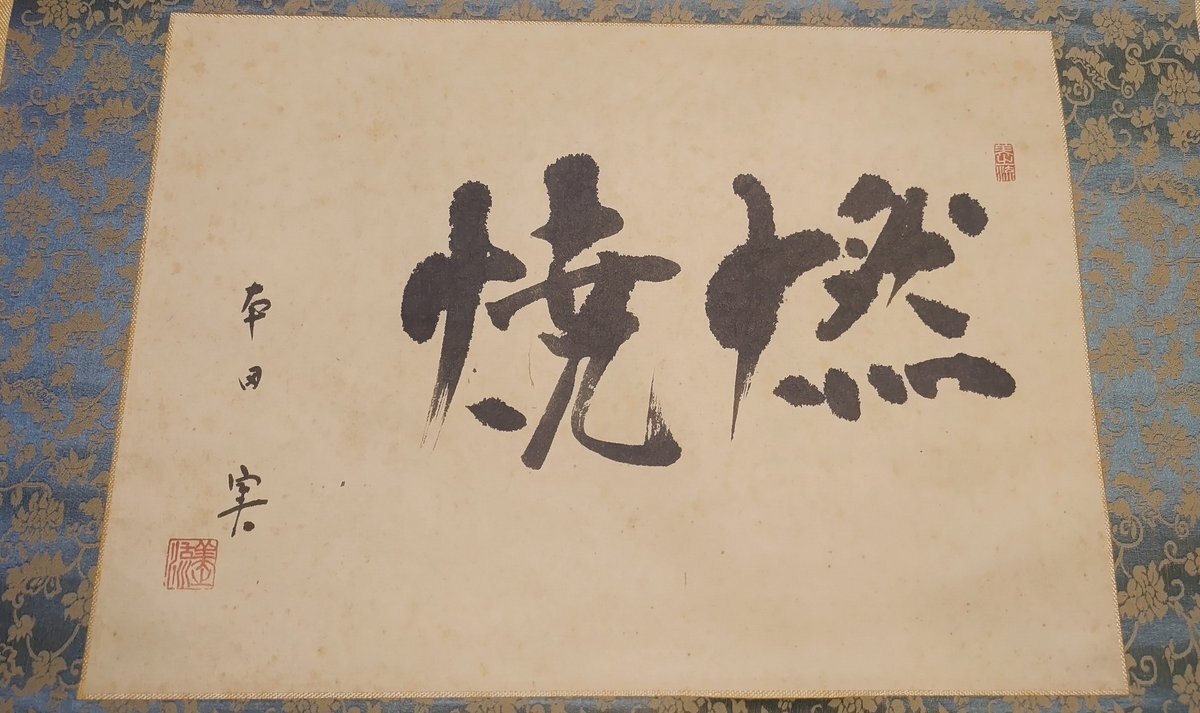 燃焼
本田実